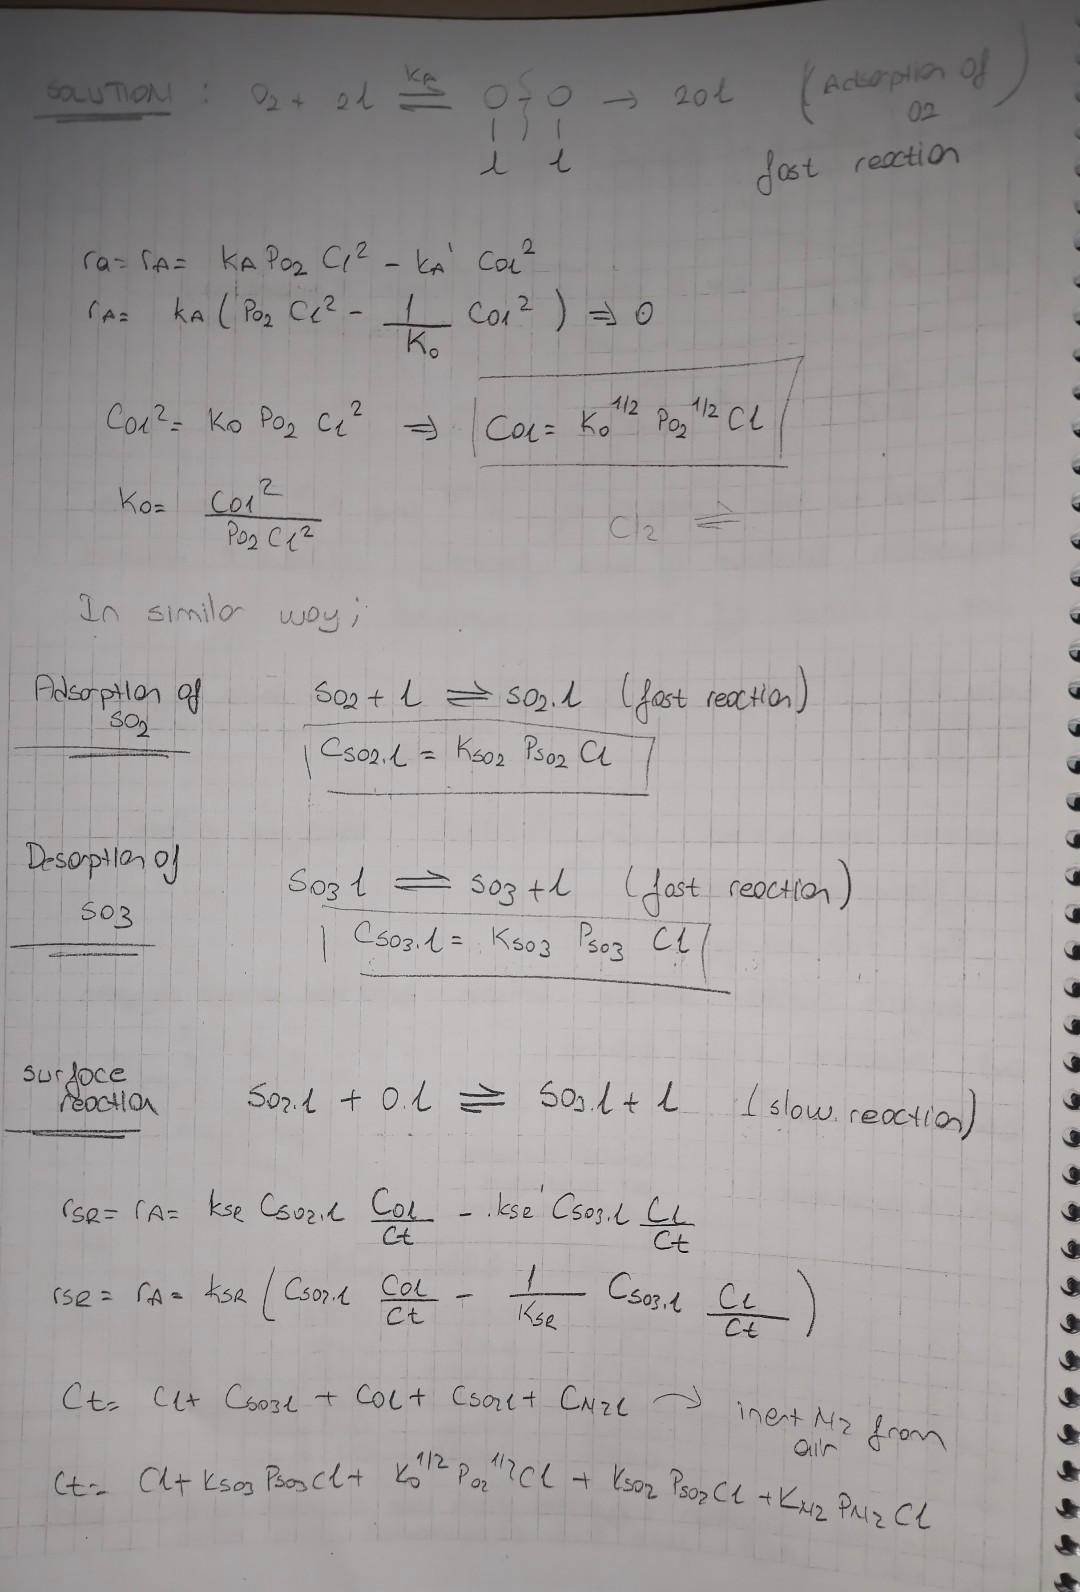 SOLUTION : O2 + 2l ⇌ O-O → 2Ol (Adsorption of O2)
kA
l l
fast reaction
ra = rA = kA PO2 Cl² - kA' COl²
rA = kA ( PO2 Cl² - 1/Ko COl² ) ⇒ 0
COl² = Ko PO2 Cl² ⇒ COl = Ko^1/2 PO2^1/2 Cl
Ko = COl² / PO2 Cl²
Cl2 ⇌
In similar way;
Adsorption of SO2
SO2 + l ⇌ SO2.l (fast reaction)
CSO2.l = KSO2 PSO2 Cl
Desorption of SO3
SO3 l ⇌ SO3 + l (fast reaction)
CSO3.l = KSO3 PSO3 Cl
surface reaction
SO2.l + O.l ⇌ SO3.l + l (slow. reaction)
rSR = rA = kSR CSO2.l COl/Ct - kSR' CSO3.l Cl/Ct
rSR = rA = kSR ( CSO2.l COl/Ct - 1/KSR CSO3.l Cl/Ct )
Ct = Cl + CSO3l + COl + CSO2l + CN2l → inert N2 from air
Ct = Cl + KSO3 PSO3 Cl + Ko^1/2 PO2^1/2 Cl + KSO2 PSO2 Cl + KN2 PN2 Cl